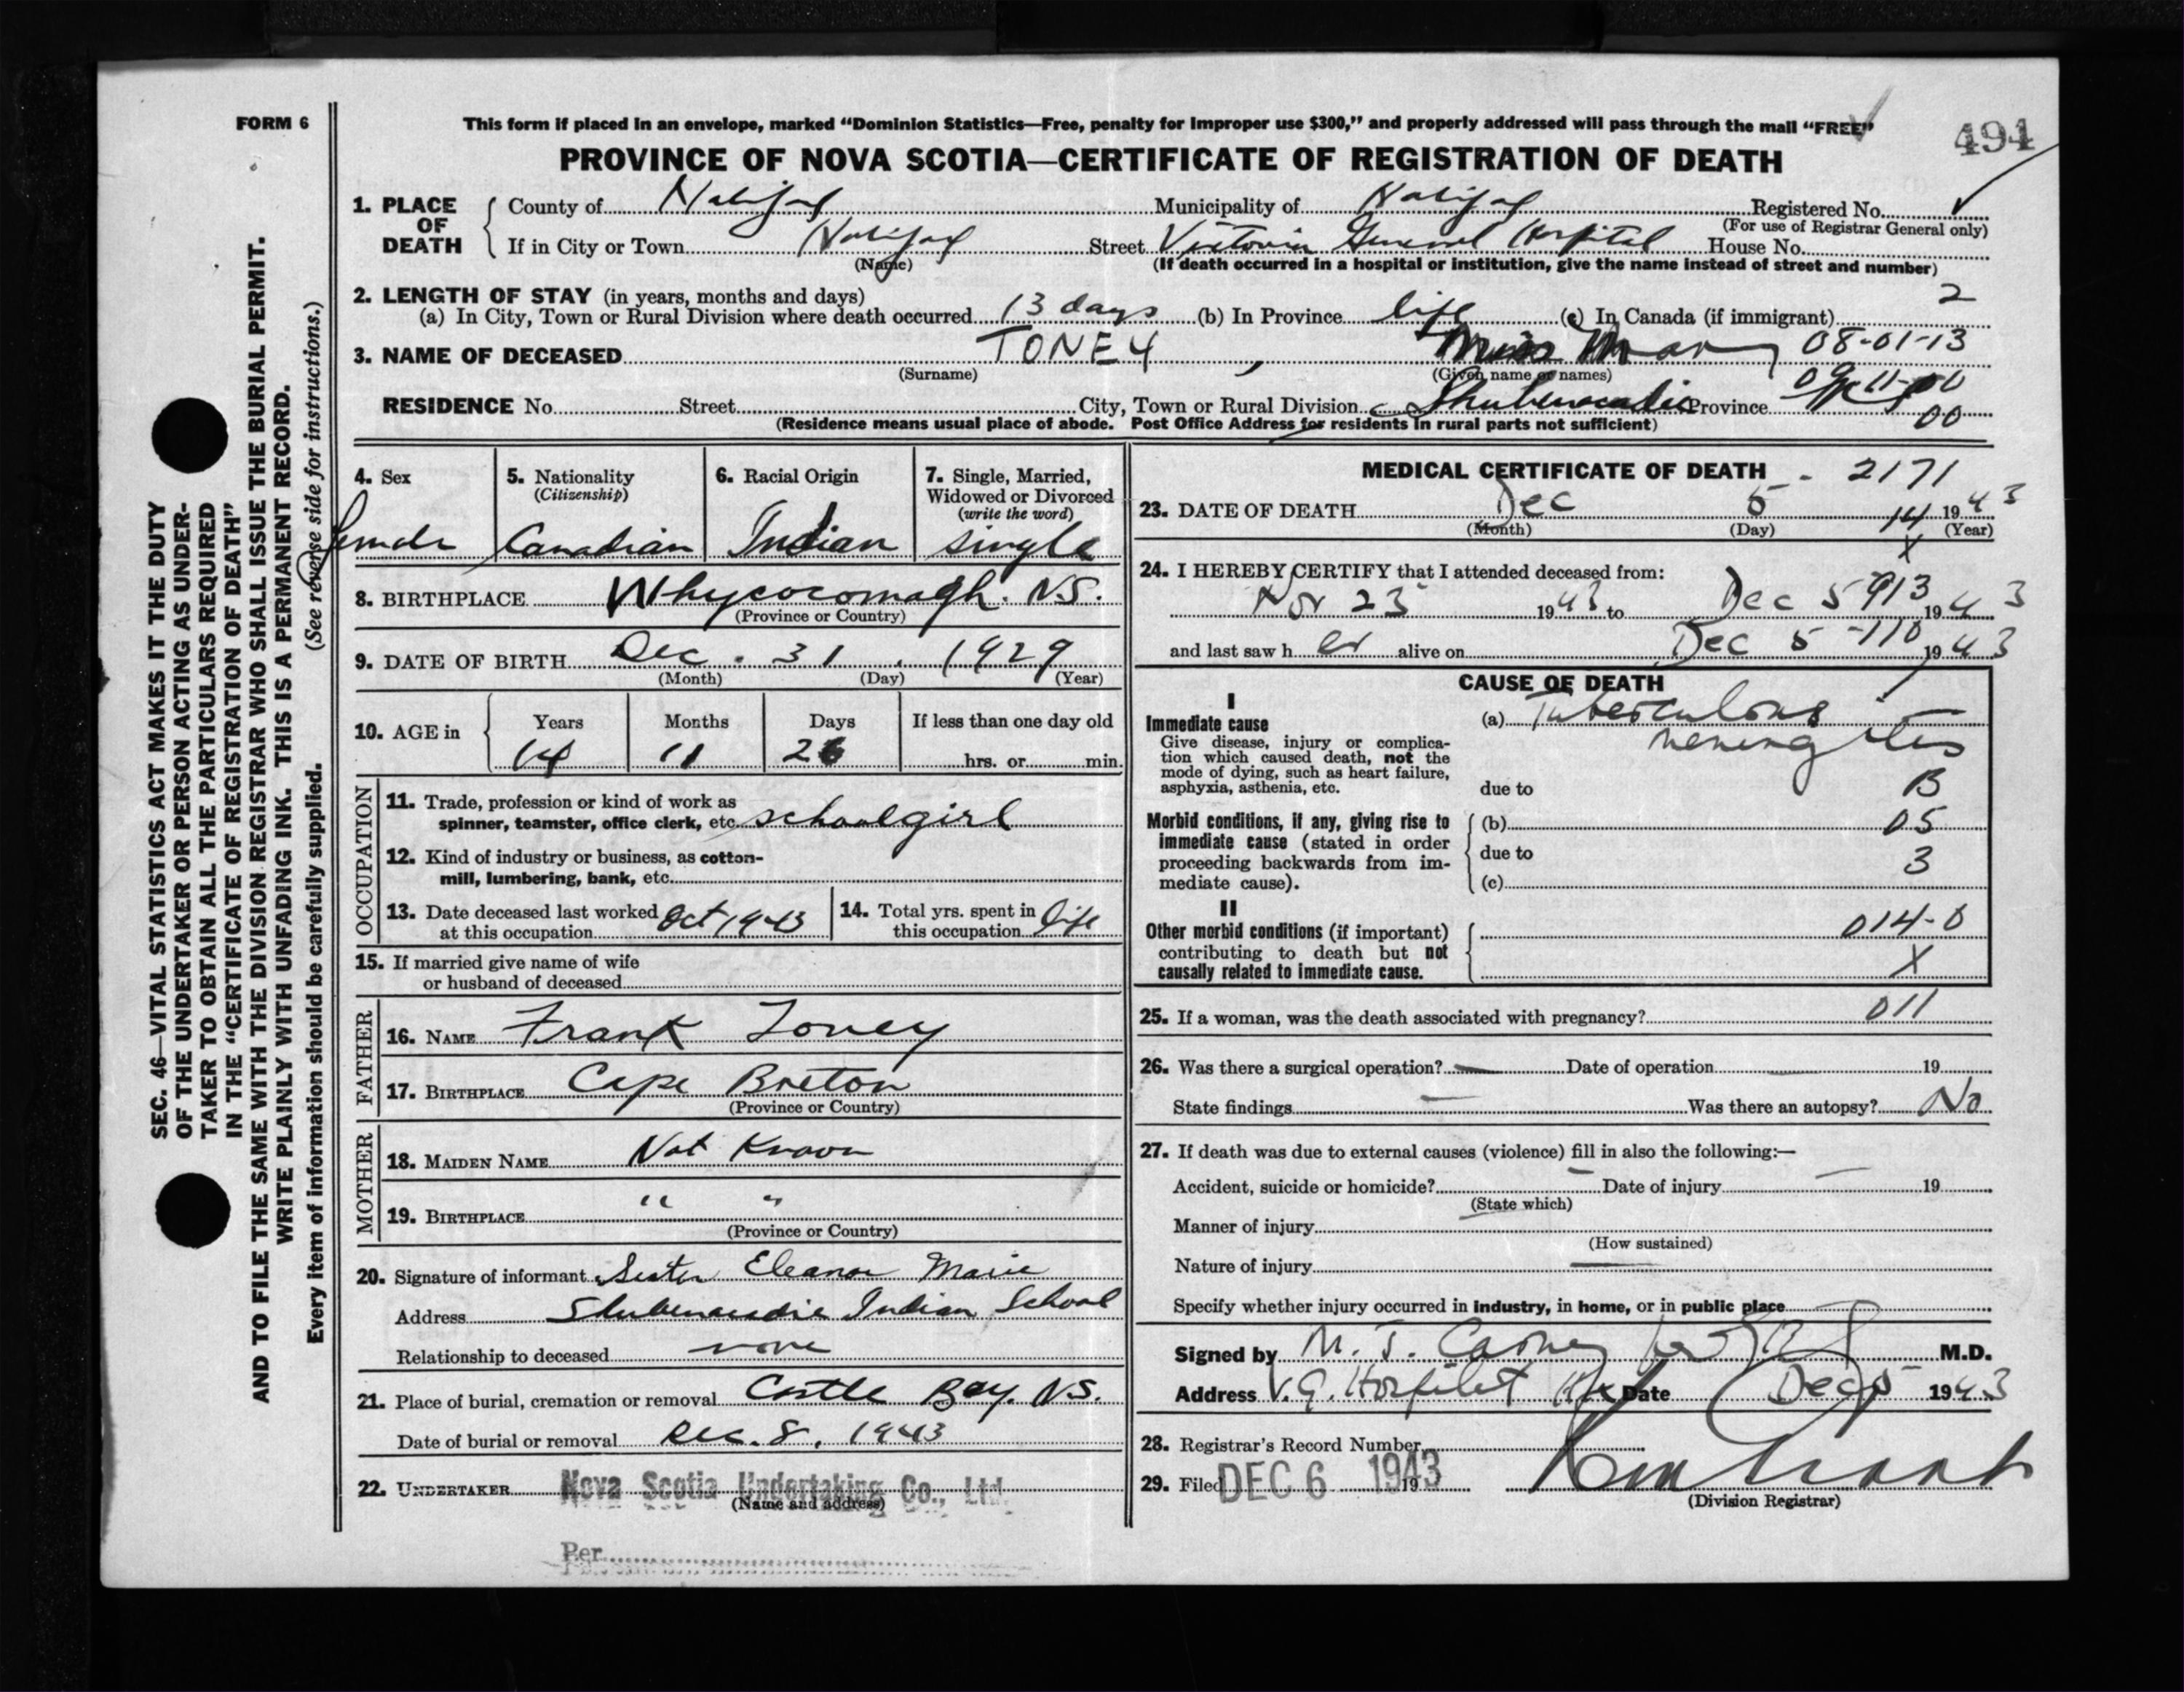 FORM 6
This form if placed in an envelope, marked “Dominion Statistics—Free, penalty for improper use $300,” and properly addressed will pass through the mail “FREE”
494
PROVINCE OF NOVA SCOTIA—CERTIFICATE OF REGISTRATION OF DEATH
1. PLACE OF DEATH
County of Halifax Municipality of Halifax Registered No.
(For use of Registrar General only)
If in City or Town Halifax Street Victoria General Hospital House No.
(Name) (If death occurred in a hospital or institution, give the name instead of street and number)
2. LENGTH OF STAY (in years, months and days) 2
(a) In City, Town or Rural Division where death occurred 13 days (b) In Province life (c) In Canada (if immigrant)
3. NAME OF DECEASED TONEY , Miss Mary 08-01-13
(Surname) (Given name or names)
RESIDENCE No. Street City, Town or Rural Division Shubenacadie Province
00
(Residence means usual place of abode. Post Office Address for residents in rural parts not sufficient)
4. Sex 5. Nationality (Citizenship) 6. Racial Origin 7. Single, Married, Widowed or Divorced (write the word)
female Canadian Indian single
8. BIRTHPLACE Whycocomagh. N.S.
(Province or Country)
9. DATE OF BIRTH Dec. 31, 1929
(Month) (Day) (Year)
10. AGE in Years Months Days If less than one day old
14 11 26 hrs. or min.
OCCUPATION
11. Trade, profession or kind of work as spinner, teamster, office clerk, etc. schoolgirl
12. Kind of industry or business, as cotton-mill, lumbering, bank, etc.
13. Date deceased last worked at this occupation Oct 1943
14. Total yrs. spent in this occupation life
15. If married give name of wife or husband of deceased
FATHER
16. NAME Frank Toney
17. BIRTHPLACE Cape Breton
(Province or Country)
MOTHER
18. MAIDEN NAME Not Known
19. BIRTHPLACE " "
(Province or Country)
20. Signature of informant Sister Eleanor Marie
Address Shubenacadie Indian School
Relationship to deceased none
21. Place of burial, cremation or removal Castle Bay. N.S.
Date of burial or removal Dec. 8, 1943
22. UNDERTAKER Nova Scotia Undertaking Co., Ltd.
(Name and address)
Per
MEDICAL CERTIFICATE OF DEATH - 2171
23. DATE OF DEATH Dec 5 1943
(Month) (Day) (Year)
14
X
24. I HEREBY CERTIFY that I attended deceased from:
Nov 23 1943 to Dec 5 1943
913
and last saw her alive on Dec 5 1943
-110
CAUSE OF DEATH
I
Immediate cause
Give disease, injury or complication which caused death, not the mode of dying, such as heart failure, asphyxia, asthenia, etc.
(a) Tuberculous
meningitis
due to B
Morbid conditions, if any, giving rise to immediate cause (stated in order proceeding backwards from immediate cause).
(b) 05
due to 3
(c)
II
Other morbid conditions (if important) contributing to death but not causally related to immediate cause.
014-0
X
25. If a woman, was the death associated with pregnancy? 011
26. Was there a surgical operation? — Date of operation — 19
State findings — Was there an autopsy? No
27. If death was due to external causes (violence) fill in also the following:—
Accident, suicide or homicide? — Date of injury — 19
(State which)
Manner of injury
(How sustained)
Nature of injury —
Specify whether injury occurred in industry, in home, or in public place
Signed by M. J. Carney per M.D.
Address V.G. Hospital Hfx Date Dec 5 1943
28. Registrar's Record Number
29. Filed DEC 6 1943 19
(Division Registrar)
SEC. 46—VITAL STATISTICS ACT MAKES IT THE DUTY
OF THE UNDERTAKER OR PERSON ACTING AS UNDER-
TAKER TO OBTAIN ALL THE PARTICULARS REQUIRED
IN THE “CERTIFICATE OF REGISTRATION OF DEATH”
AND TO FILE THE SAME WITH THE DIVISION REGISTRAR WHO SHALL ISSUE THE BURIAL PERMIT.
WRITE PLAINLY WITH UNFADING INK. THIS IS A PERMANENT RECORD.
Every item of information should be carefully supplied. (See reverse side for instructions.)